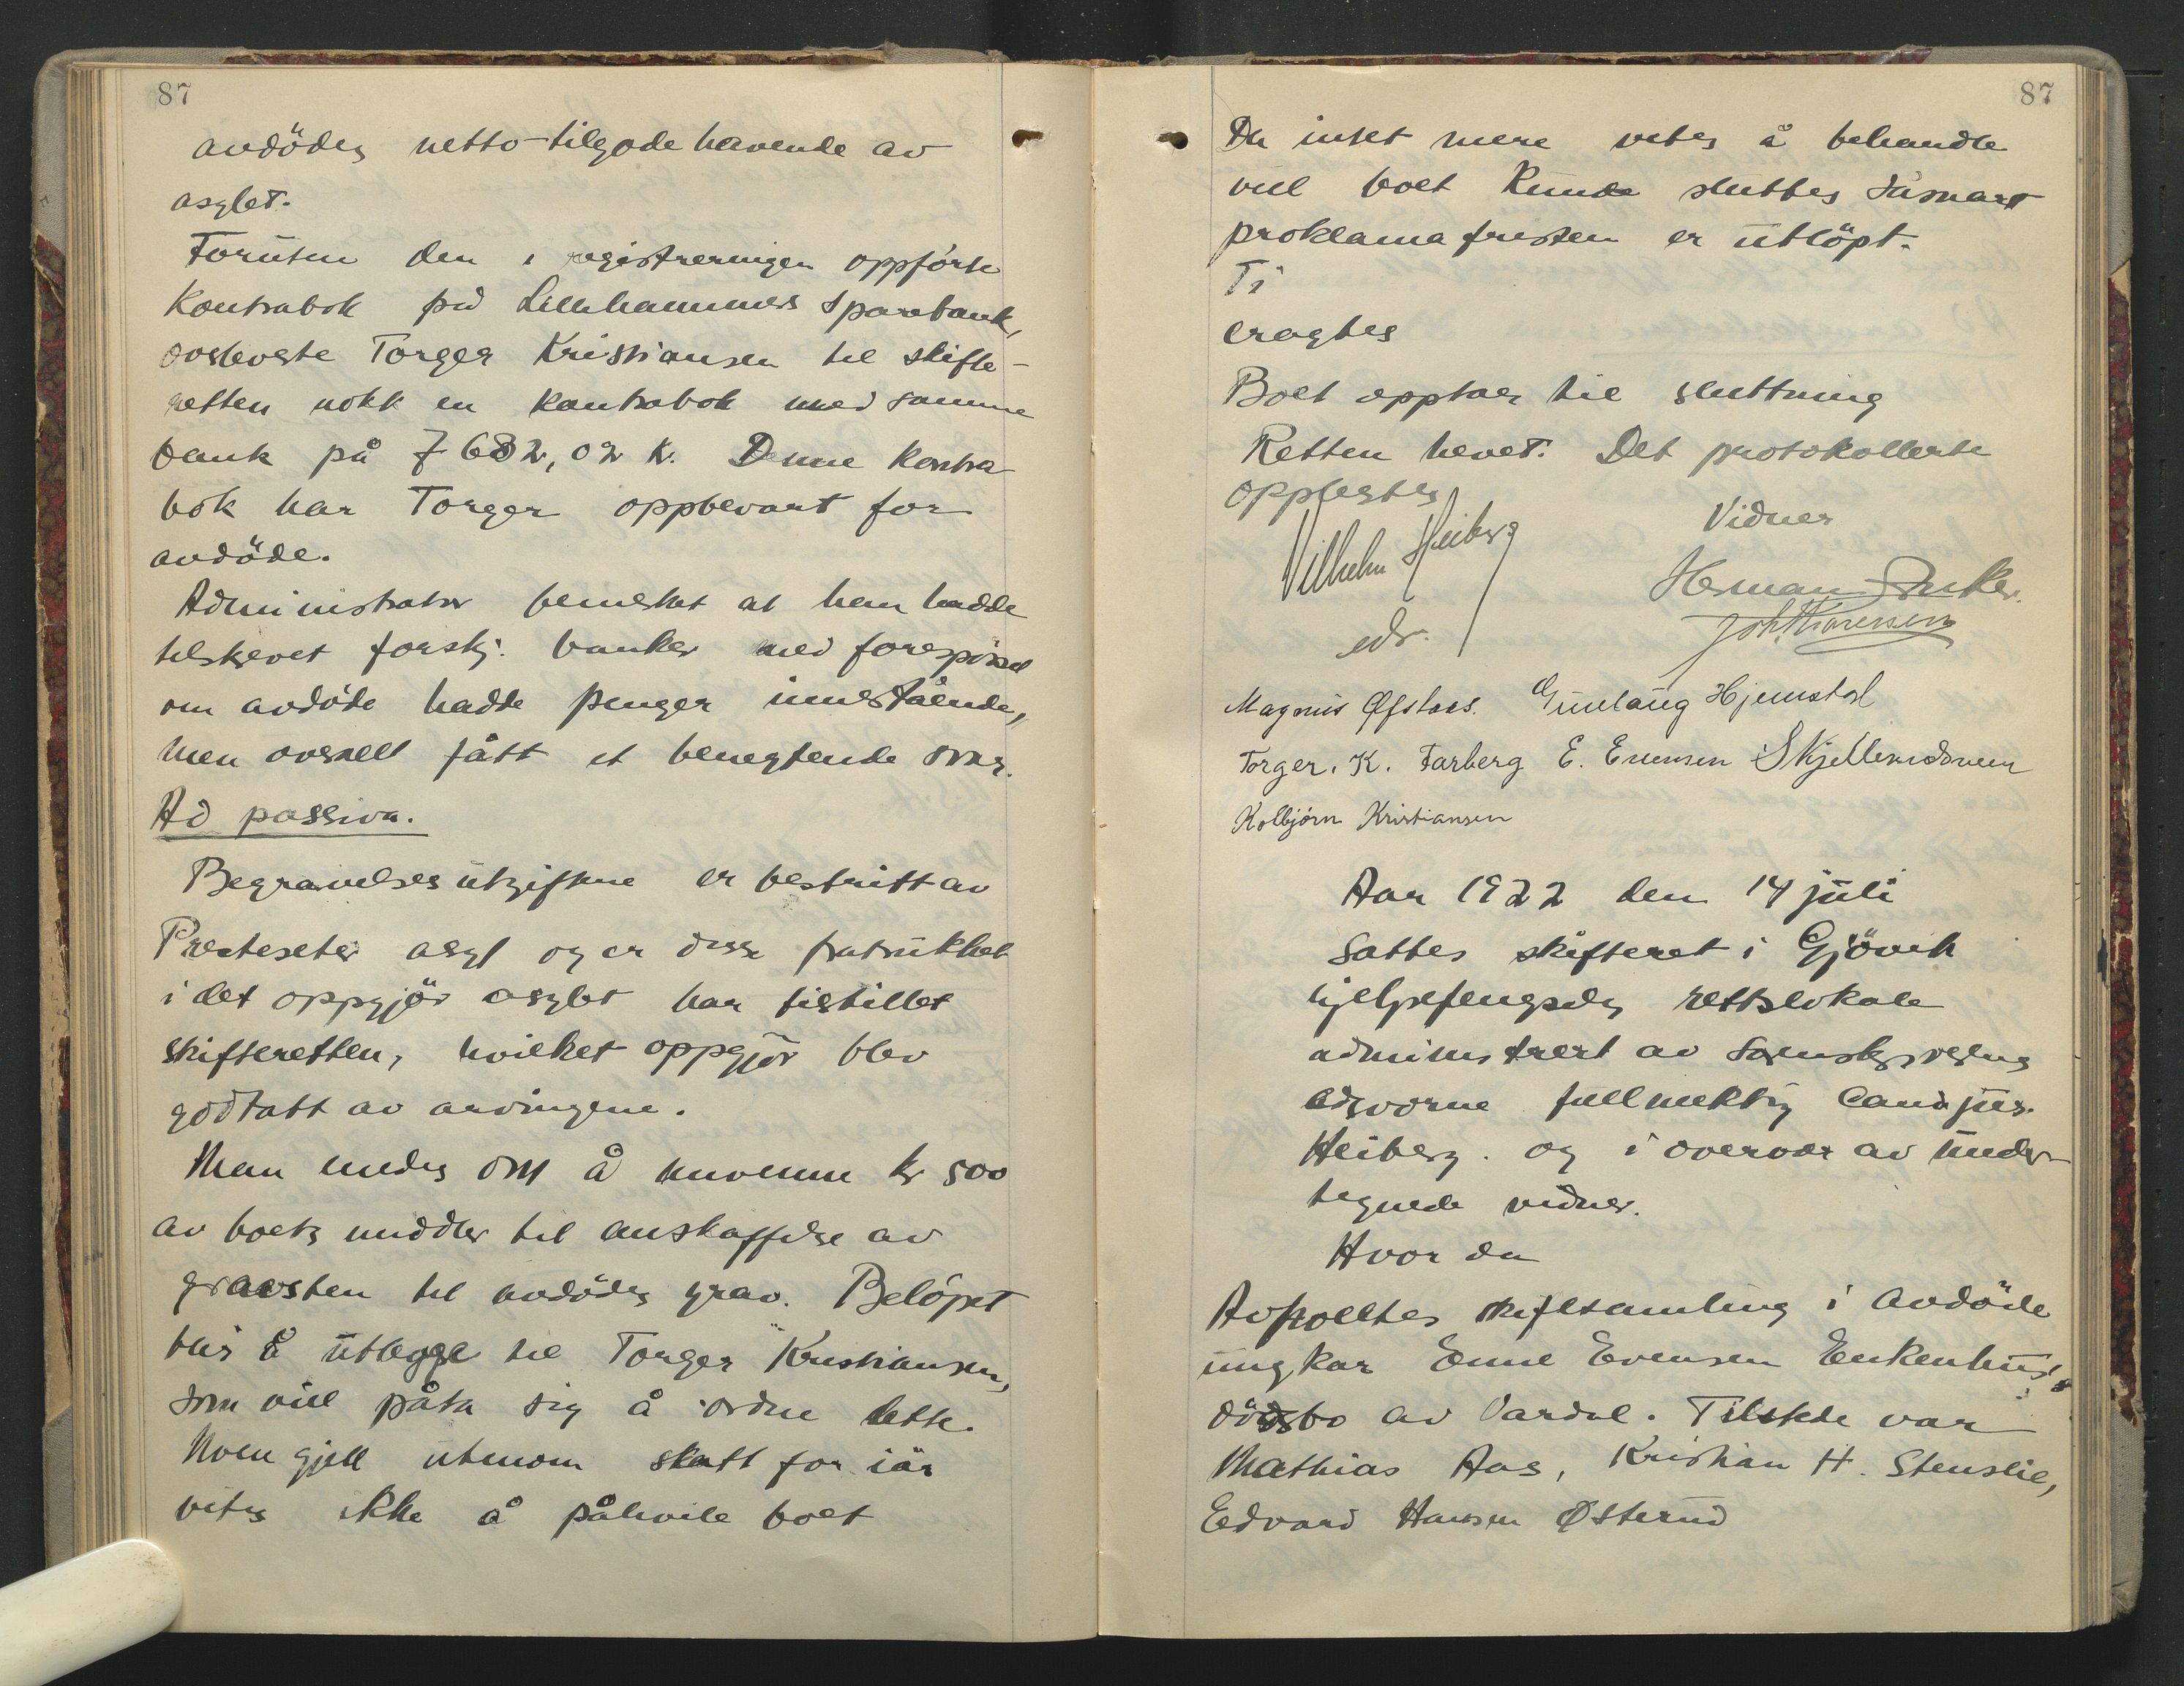 87
avdödes netto-tilgodehavende av
asylet.
Foruten den i registreringen oppförte
Kontrabok på Lillehammers Sparebank,
overleverte Torger Kristiansen til skifte-
retten nokk en kontrabok med samme
bank på 7682,02 k. Denne kontra-
bok har Torger oppbevart for
avdöde.
Administrator bemerket at han hadde
tilskrevet forskj. banker med forespörsel
om avdöde hadde penger innestående,
men overalt fått et benegtende svar.
Ad passiva.
Begravelsesutgiftene er bestritt av
Presteseter asyl og er disse fratrukket
i det oppgjör asylet har tilstillet
skifteretten, hvilket oppgjör blev
godtatt av arvingene.
Man enedes om å anvende kr 500
av boets midler til anskaffelse av
gravsten til avdödes grav. Belöpet
blir å utlegge til Torger Kristiansen,
som vill påta sig å ordne dette.
Noen gjell utenom skatt for iår
vites ikke å påhvile boet
87
Da intet mere vites å behandle
vill boet kunde sluttes såsnart
proklamafristen er utlöpt.
Ti
eragtes
Boet opptaes til sluttning
Retten hevet. Det protokollerte
opplestes
Vidner
Vilhelm Heiberg
Herman
edv.
Joh. Thoresen
Magnus Øfstaas. Gunlaug Hjemstad
Torger. K. Farberg E. Evensen
Kolbjörn Kristiansen
Aar 1922 den 14 juli
Sattes skifteret i Gjövik
hjelpefengsels rettslokale
administrert av Sorenskriverens
edsvorne fullmektig Cand jur.
Heiberg. og i overvær av under-
tegnede vidner.
Hvor da
Avholltes skiftsamling i avdöde
ungkar Enne Evensen Enkenhus's
dödsbo av Vardal. Tilstede var
Mathias Aas, Kristian H. Stenslie,
Edvard Hansen Østerud